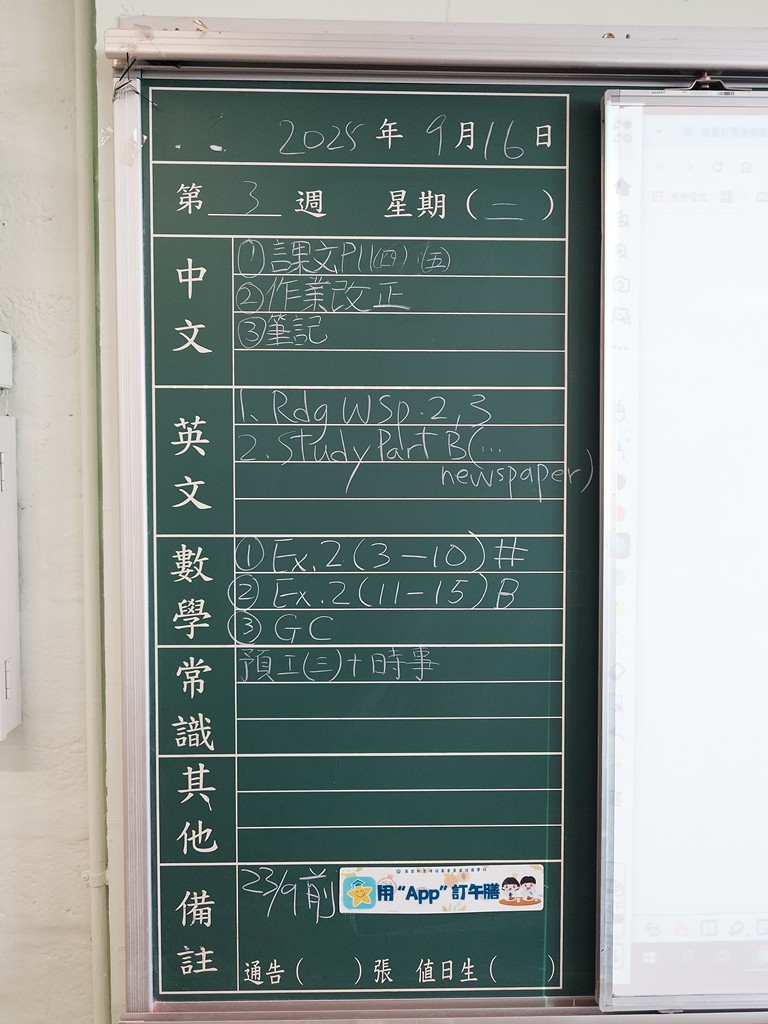 2025年9月16日
第3週 星期(二)
中文
①課文P11(四)(五)
②作業改正
③筆記
英文
1. Rdg WS p.2,3
2. Study Part B(...
newspaper)
數學
①Ex.2(3-10)#
②Ex.2(11-15)B
③GC
常識
預工(三)+時事
其他
備註
23/9前
用“App”訂午膳
通告( )張 值日生( )